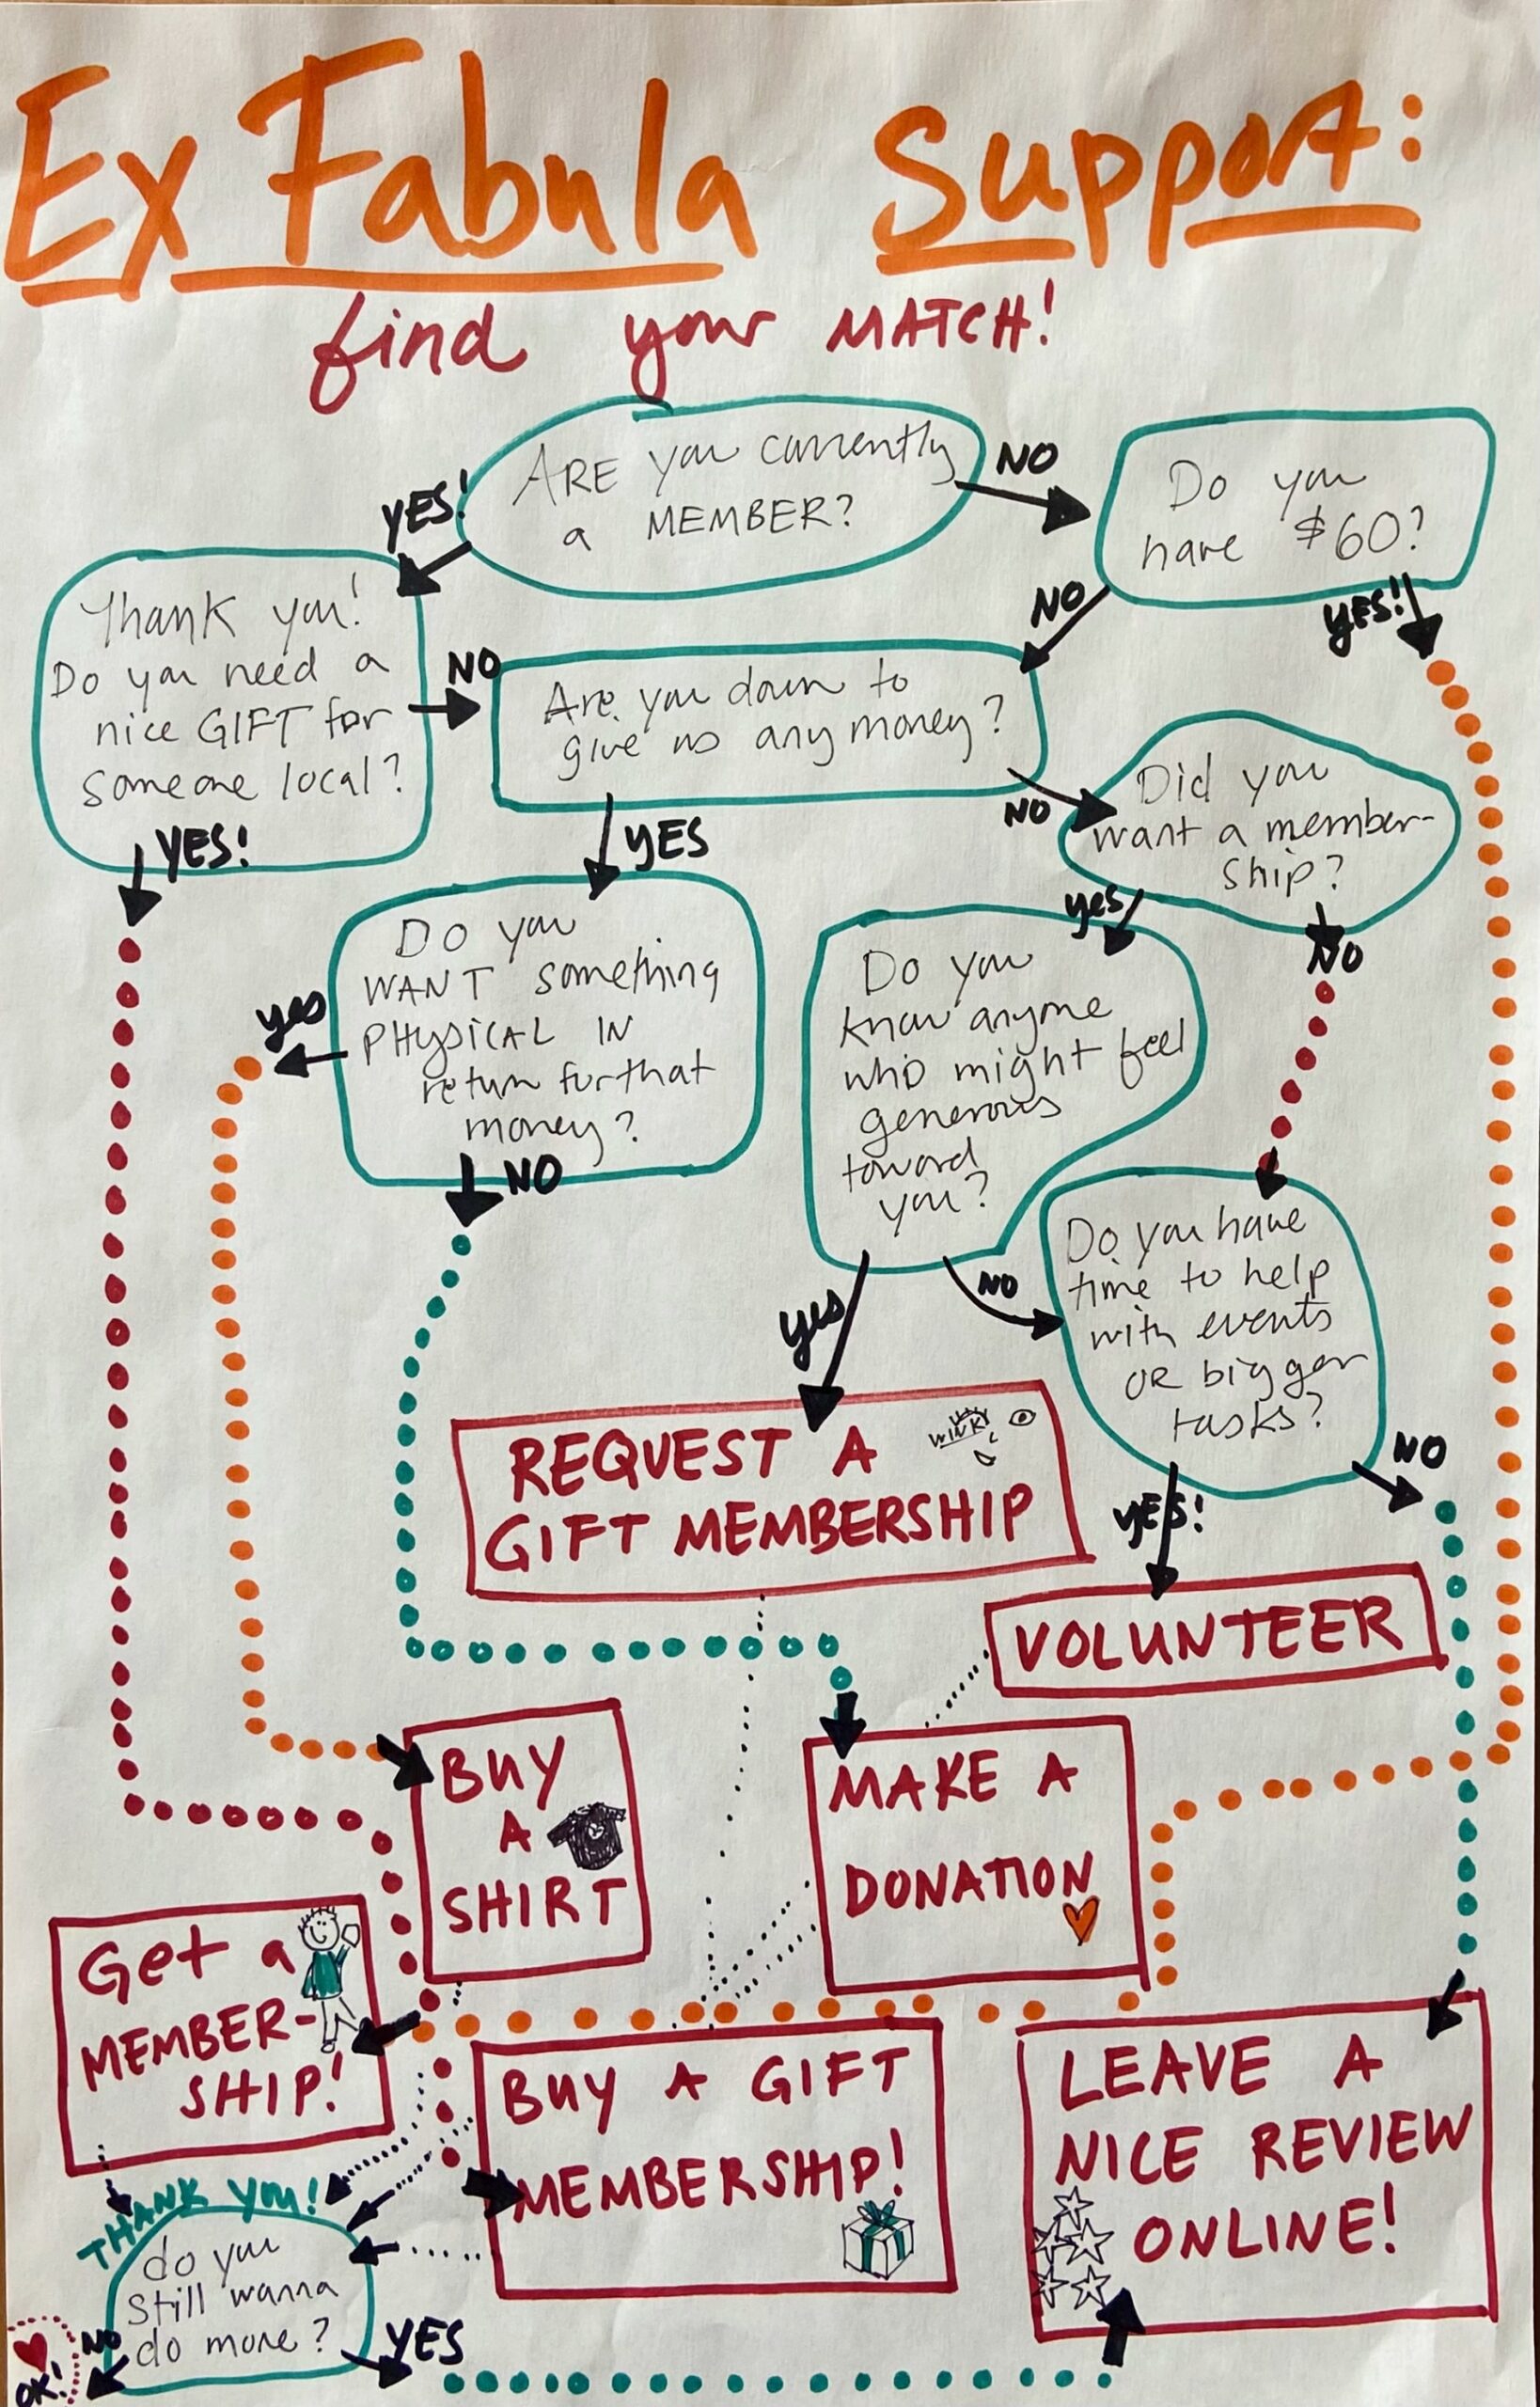 Ex Fabula Support:
find your MATCH!
ARE you currently
a MEMBER?
NO
YES!
Do you
have $60?
NO
YES!
Thank you!
Do you need a
nice GIFT for
someone local?
NO
YES!
Are you down to
give us any money?
NO
YES
Did you
want a member-
ship?
yes
NO
Do you
WANT something
PHYSICAL IN
return for that
money?
yes
NO
Do you
know anyone
who might feel
generous
toward
you?
yes
NO
Do you have
time to help
with events
OR bigger
tasks?
YES!
NO
REQUEST A
GIFT MEMBERSHIP
WINK!
VOLUNTEER
BUY
A
SHIRT
MAKE A
DONATION
Get a
MEMBER-
SHIP!
BUY A GIFT
MEMBERSHIP!
LEAVE A
NICE REVIEW
ONLINE!
THANK YOU!
do you
still wanna
do more?
NO
YES
OK!